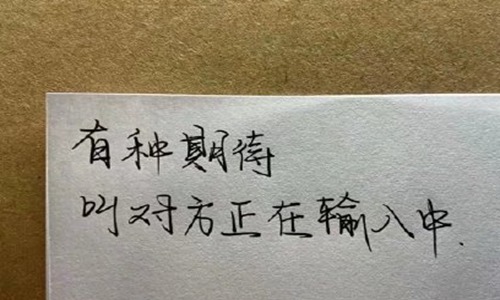 有种期待
叫对方正在输入中.